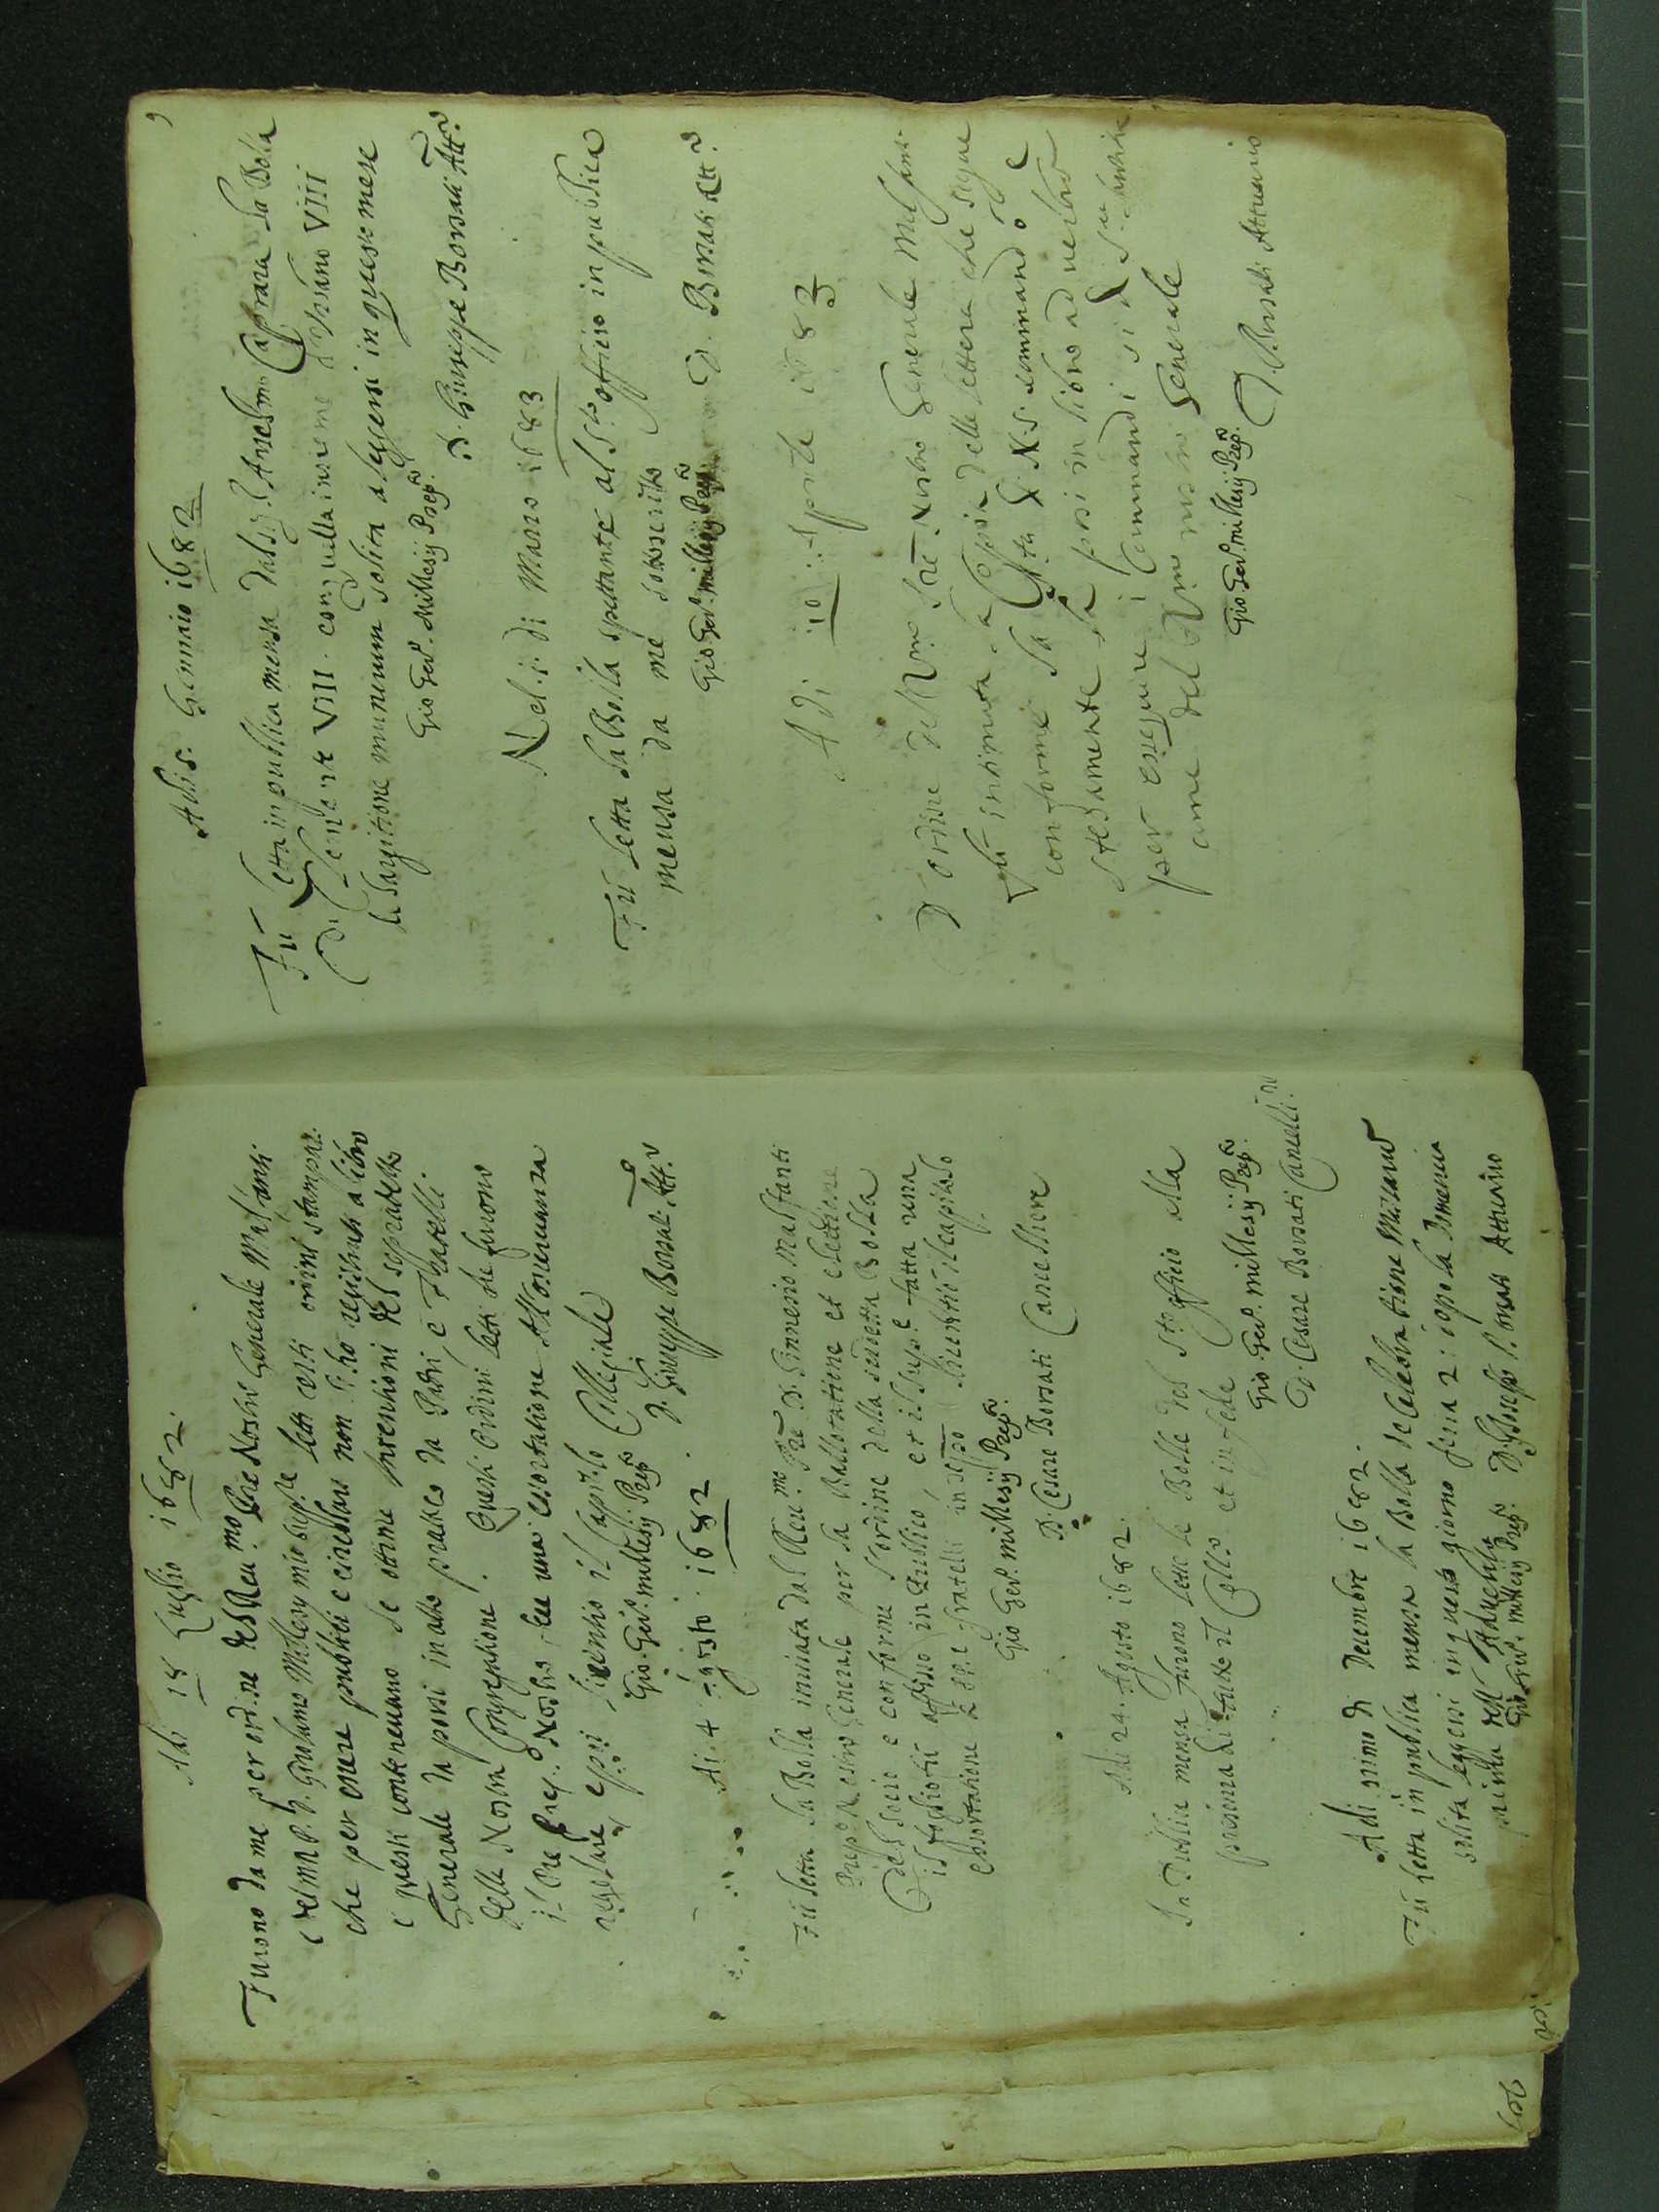 Adi 18 Luglio 1682.
Furono da me per ordine del Reu.mo Pre Nostro Generale Malfanti
e del M. R. P. D. Girolamo Millesij mio sup.re letti certi ordini stampati.
che per essere publici e circolari non li ho registrati a libro
e questi contenevano le ottime intentioni del sopradetto
Generale da porsi in atto pratico da Padri e Fratelli
della Nostra Congregatione. Questi Ordini letti che furono
il Pre Prep.o Nostro feu una esortatione all'osservanza
regolare e poi licentiò il Capitolo Collegiale
Gio. Ger.o Millesij Prep.o D. Giuseppe Borsati Att.o
Adi 4 Agosto 1682.
Fù letta la Bolla inviata dal Reu.mo Pre D. Ginnesio Malfanti
Prep.o Nostro Generale per la Ballottatione et elettione
del Socio e conforme l'ordine della sudetta Bolla
il foglio fù affisso in Publico, et il Sup.e fatta una
essortatione a PP. e fratelli licentiò il Capitolo
Gio Ger.o Millesij Prep.o
D. Cesare Borsati Cancelliere
Adi 24. Agosto 1682.
In Publica mensa furono lette le Bolle del S.to officio alla
presenza di tutto il Coll.o et in fede
Gio. Ger.o Millesij Prep.o
D. Cesare Borsati Cancell.o
Adi primo di Decembre 1682.
Fù letta in publica mensa la Bolla de Celebratione Missarum
solita leggersi in questo giorno feria 2: dopo la Domenica
prima dell'Advento D. Gioseffo Borsati Attuario
Gio Ger.o Millesij Prep.o
9
Adi 5. Gennaio 1682
Fu Letta in publica mensa dal Sig. D. Anselmo Caprara la Bolla
Di Clemente VIII. con quella insieme d'Urbano VIII
de largitione munerum solita a legersi in questo mese
Gio Ger.o Millesij Prep.o D. Giuseppe Borsati Att.o
Nel. i. di Marzo 1683
Fù letta la Bolla spettante al S.to officio in publica
mensa da me sottoscritto
Gio Ger.o Millesij Prep.o D. Borsati Att.o
Adi 10 Aprile 1683
D'ordine del R.mo Pre Nostro Generale Malfanti
fù intimata la Copia della lettera che segue
conforme la S.tà di N. S. commandò e
stesamente la posi in libro ad verbo
per esseguire i Commandi sì di S.
come del R.mo nostro Generale
Gio Ger.o Millesij Prep.o D. Borsati Attuario